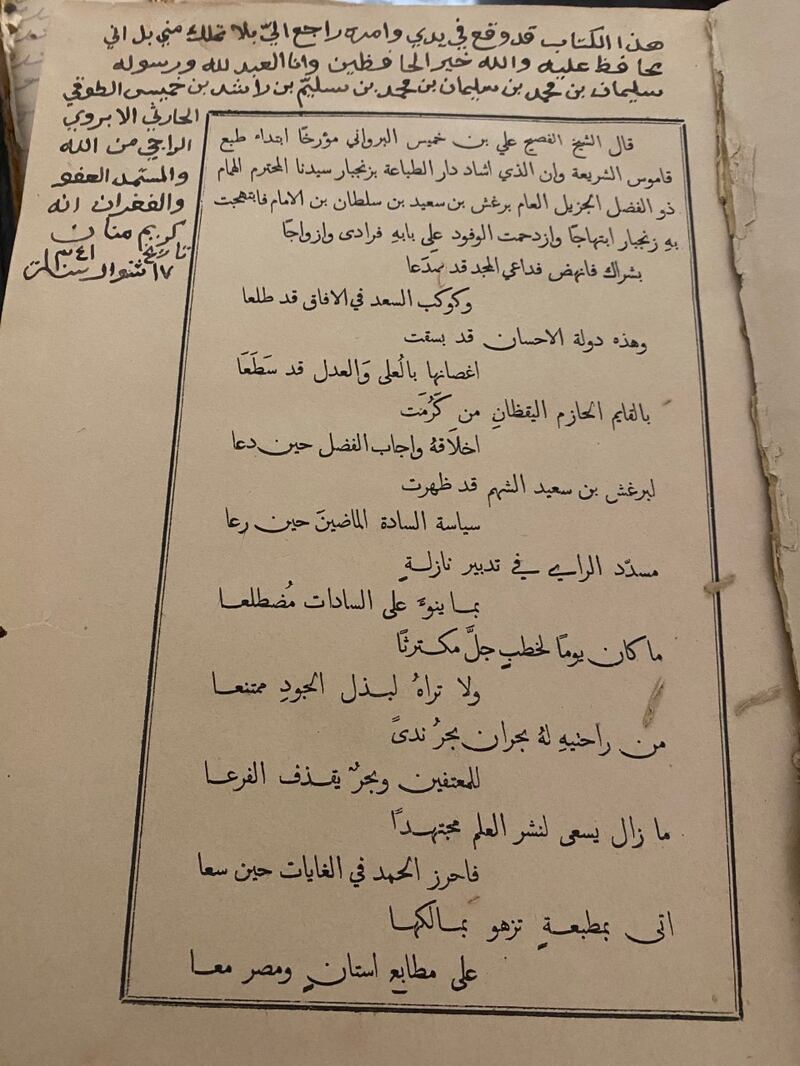 هذا الكتاب قد وقع في يدي وامره راجع اليّ بلا تملك مني بل اني
محافظ عليه والله خير الحافظين وانا العبد لله ورسوله
سليمان بن محمد بن سليمان بن محمد بن سليّم بن راشد بن خميس الطوقي
الحارثي الابروي
الراجي من الله
والمستمد العفو
والغفران انه
كريم منان
تاريخ
١٧ شوال سنة ١٣٤١
قال الشيخ الفصيح علي بن خميس البرواني مؤرخًا ابتداء طبع
قاموس الشريعة وان الذي اشاد دار الطباعة بزنجبار سيدنا المحترم الهمام
ذو الفضل الجزيل العام برغش بن سعيد بن سلطان بن الامام فابتهجت
بهِ زنجبار ابتهاجًا وازدحمت الوفود على بابهِ فرادى وازواجًا
بشراك فانهض فداعي المجد قد صَدَعا
وكوكب السعد في الافاق قد طلعا
وهذه دولة الاحسان قد بسقت
اغصانها بالُعلى وَالعدل قد سَطَعَا
بالقايم الحازم اليقظانِ من كَرُمَت
اخلاَقهُ واجاب الفضل حين دعا
لبرغش بن سعيد الشهم قد ظهرت
سياسة السادة الماضينَ حين رعا
مسدّد الراي في تدبير نازلةٍ
بما ينوءُ على السادات مُضطلعا
ما كان يومًا لخطبٍ جلَّ مكترثًا
ولا تراهُ لبذل الجودِ ممتنعا
من راحتيهِ لهُ بحران بحرُ ندىً
للمعتفين وبحرٌ يقذف الفرعا
ما زال يسعى لنشر العلم مجتهدًا
فاحرز الحمد في الغايات حين سعا
اتى بمطبعةٍ تزهو بمالكها
على مطابع استانٍ ومصر معا